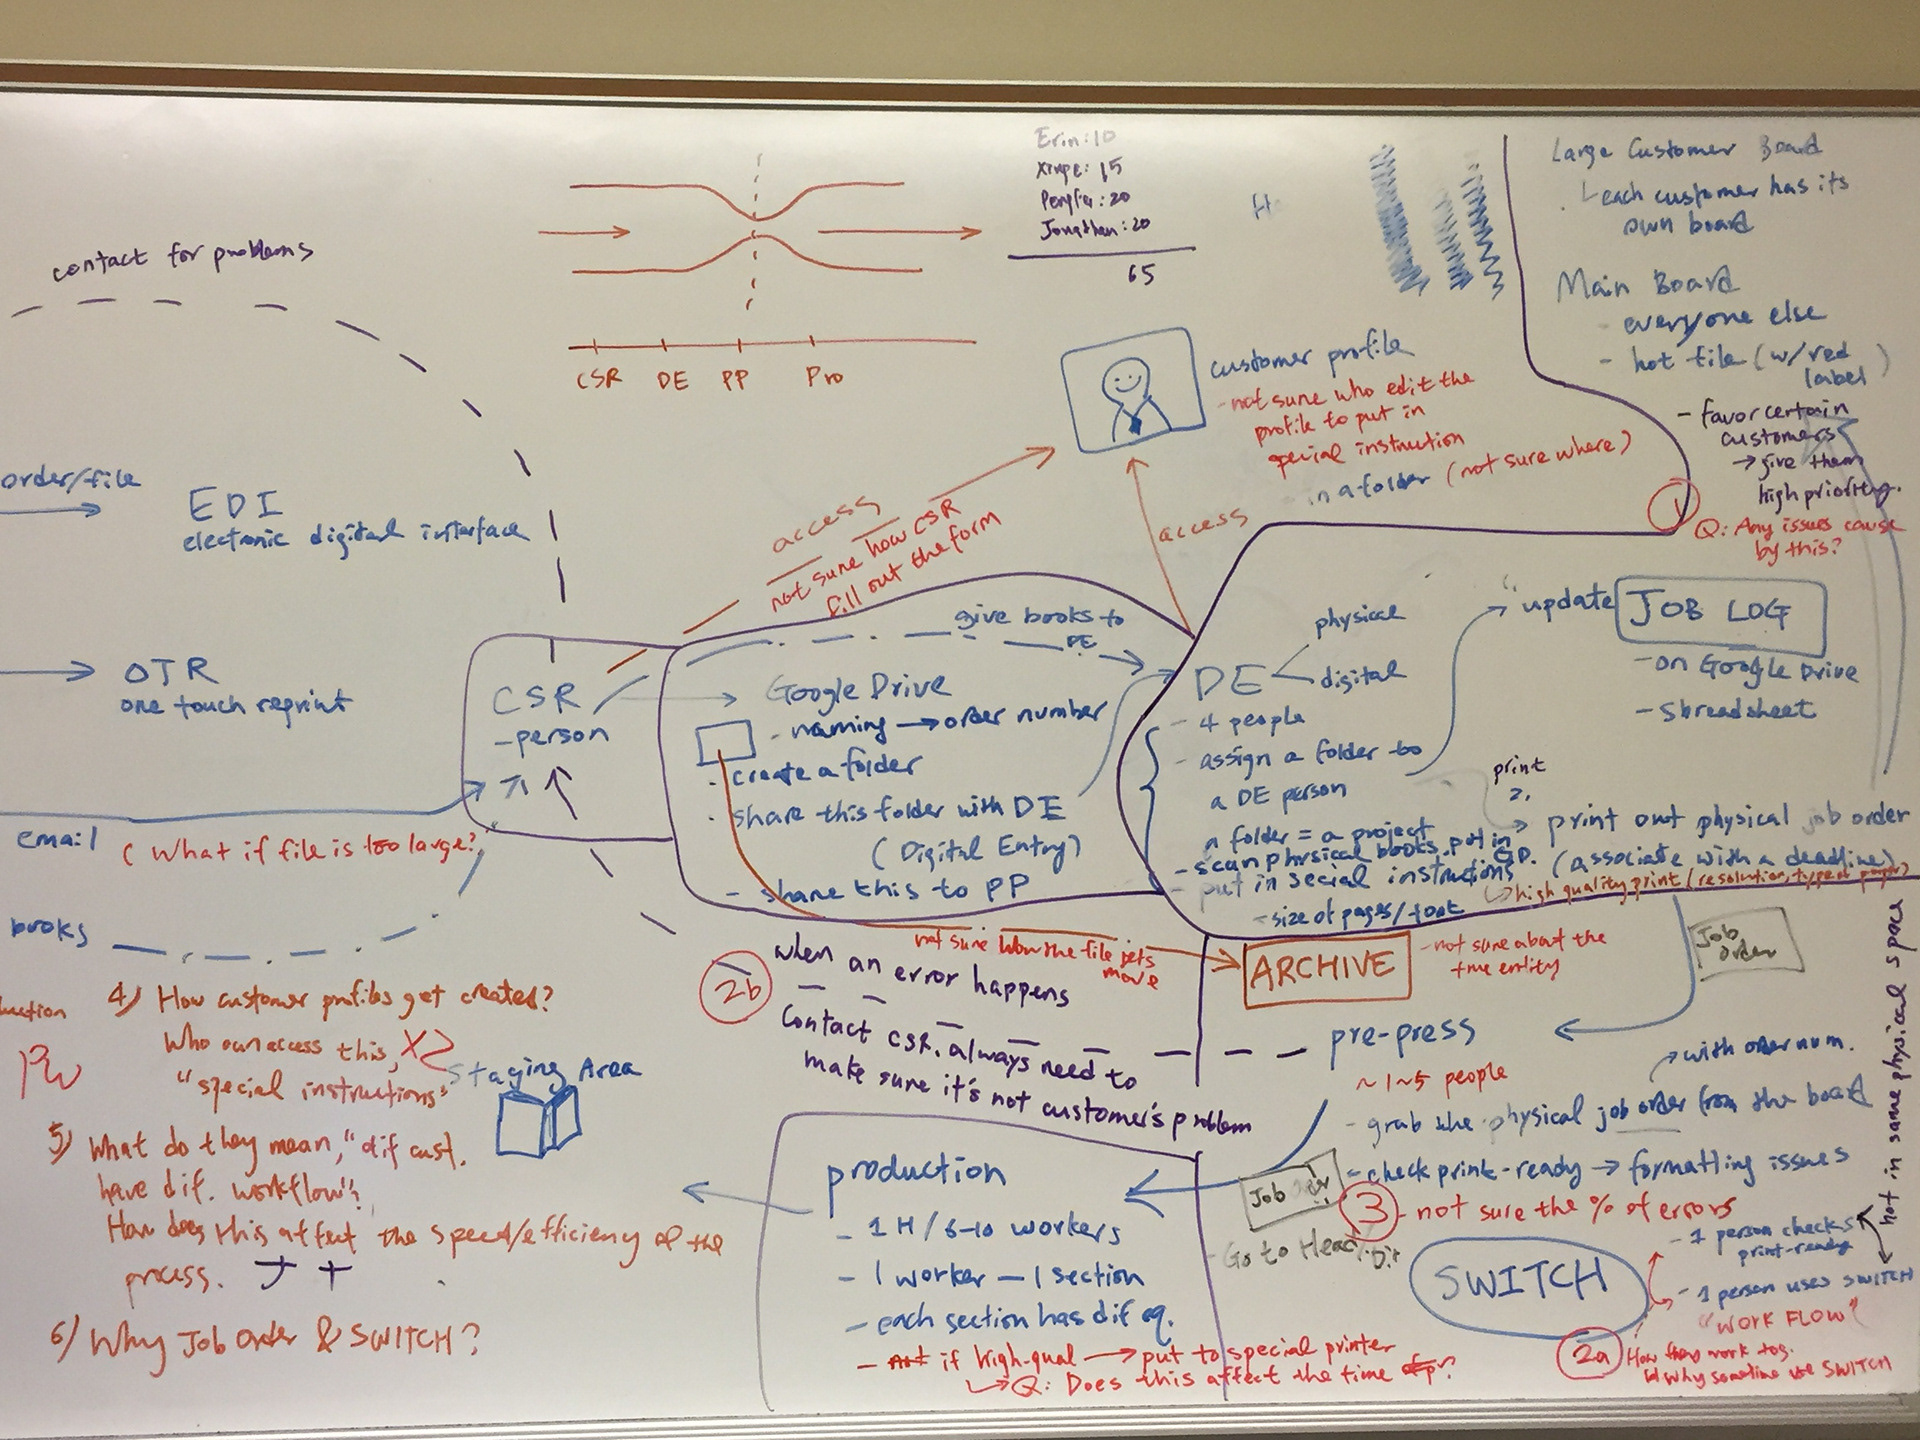 contact for problems
order/file
EDI
electronic digital interface
OTR
one touch reprint
email
( What if file is too large?
books
CSR DE PP Pro
Erin: 10
15
20
Jonathan: 20
65
CSR
- person
access
not sure how CSR
fill out the form
customer profile
- not sure who edit the
profile to put in
special instruction
- in a folder (not sure where)
access
Large Customer Board
each customer has its
own board
Main Board
- everyone else
- hot file (w/red
label)
- favor certain
customers
→ give them
high priority.
1
Q: Any issues cause
by this?
give books to
DE
Google Drive
- naming → order number
- create a folder
- share this folder with DE
(Digital Entry)
- share this to PP
DE
physical
digital
- 4 people
- assign a folder to
a DE person
a folder = a project
- scan physical books, put in
G.D.
- put in secial instructions
- size of pages/foot
high quality print (resolution, type of paper)
"update
JOB LOG
- on Google Drive
- spreadsheet
print
2,
print out physical job order
(associate with a deadline)
not sure how the file gets
move
ARCHIVE
- not sure about the
time entity
Job
order
2b
when an error happens
Contact CSR. always need to
make sure it's not customer's problem
pre-press
~1~5 people
with order num.
- grab the physical job order from the board
- check print-ready → formatting issues
3
- not sure the % of errors
not in same physical space
- 1 person checks
print-ready
- 1 person uses SWITCH
"WORK FLOW"
SWITCH
2a
How they work tog.
why sometime use SWITCH
Job order
Go to Head
production
- 1 H / 6-10 workers
- 1 worker — 1 section
- each section has dif eq.
- if high-qual → put to special printer
Q: Does this affect the time
Staging Area
4) How customer profiles get created?
Who can access this,
"special instructions"
5) What do they mean, "dif cust.
have dif. workflow"?
How does this affect the speed/efficiency of the
process.
6) Why Job Order & SWITCH?